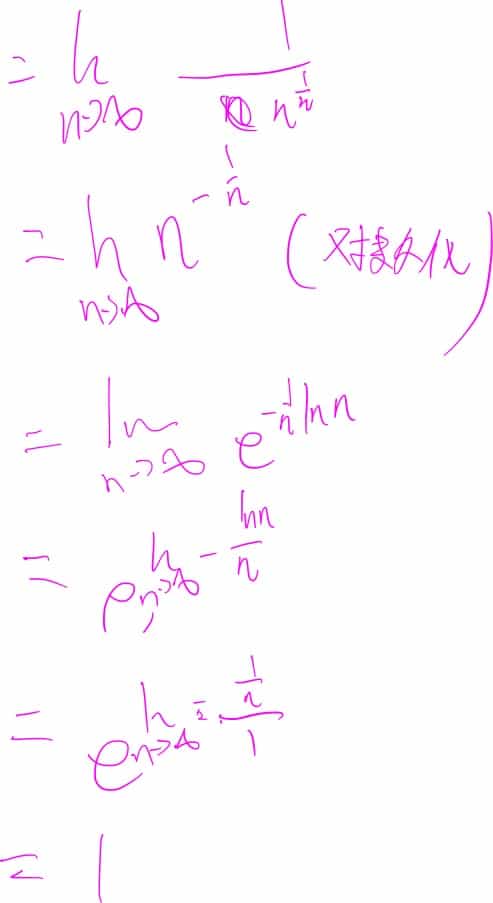 = lim_{n→∞} \frac{1}{n^{\frac{1}{n}}}
= lim_{n→∞} n^{-\frac{1}{n}} (对数化)
= lim_{n→∞} e^{-\frac{1}{n} ln n}
= e^{lim_{n→∞} -\frac{ln n}{n}}
= e^{lim_{n→∞} -\frac{\frac{1}{n}}{1}}
= 1